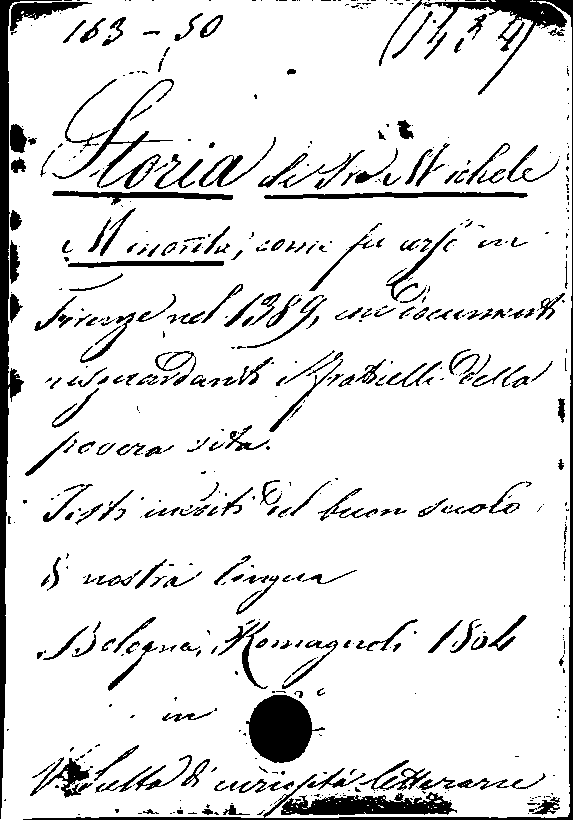 163-50 (1434)
Storia di Fra Michele
Minorita, come fu arso in
Firenze nel 1389, con documenti
risguardanti i fratricelli della
povera vita.
Testi inediti del buon secolo
di nostra lingua
Bologna, Romagnoli 1864
in
V. Scelta di curiosità letterarie